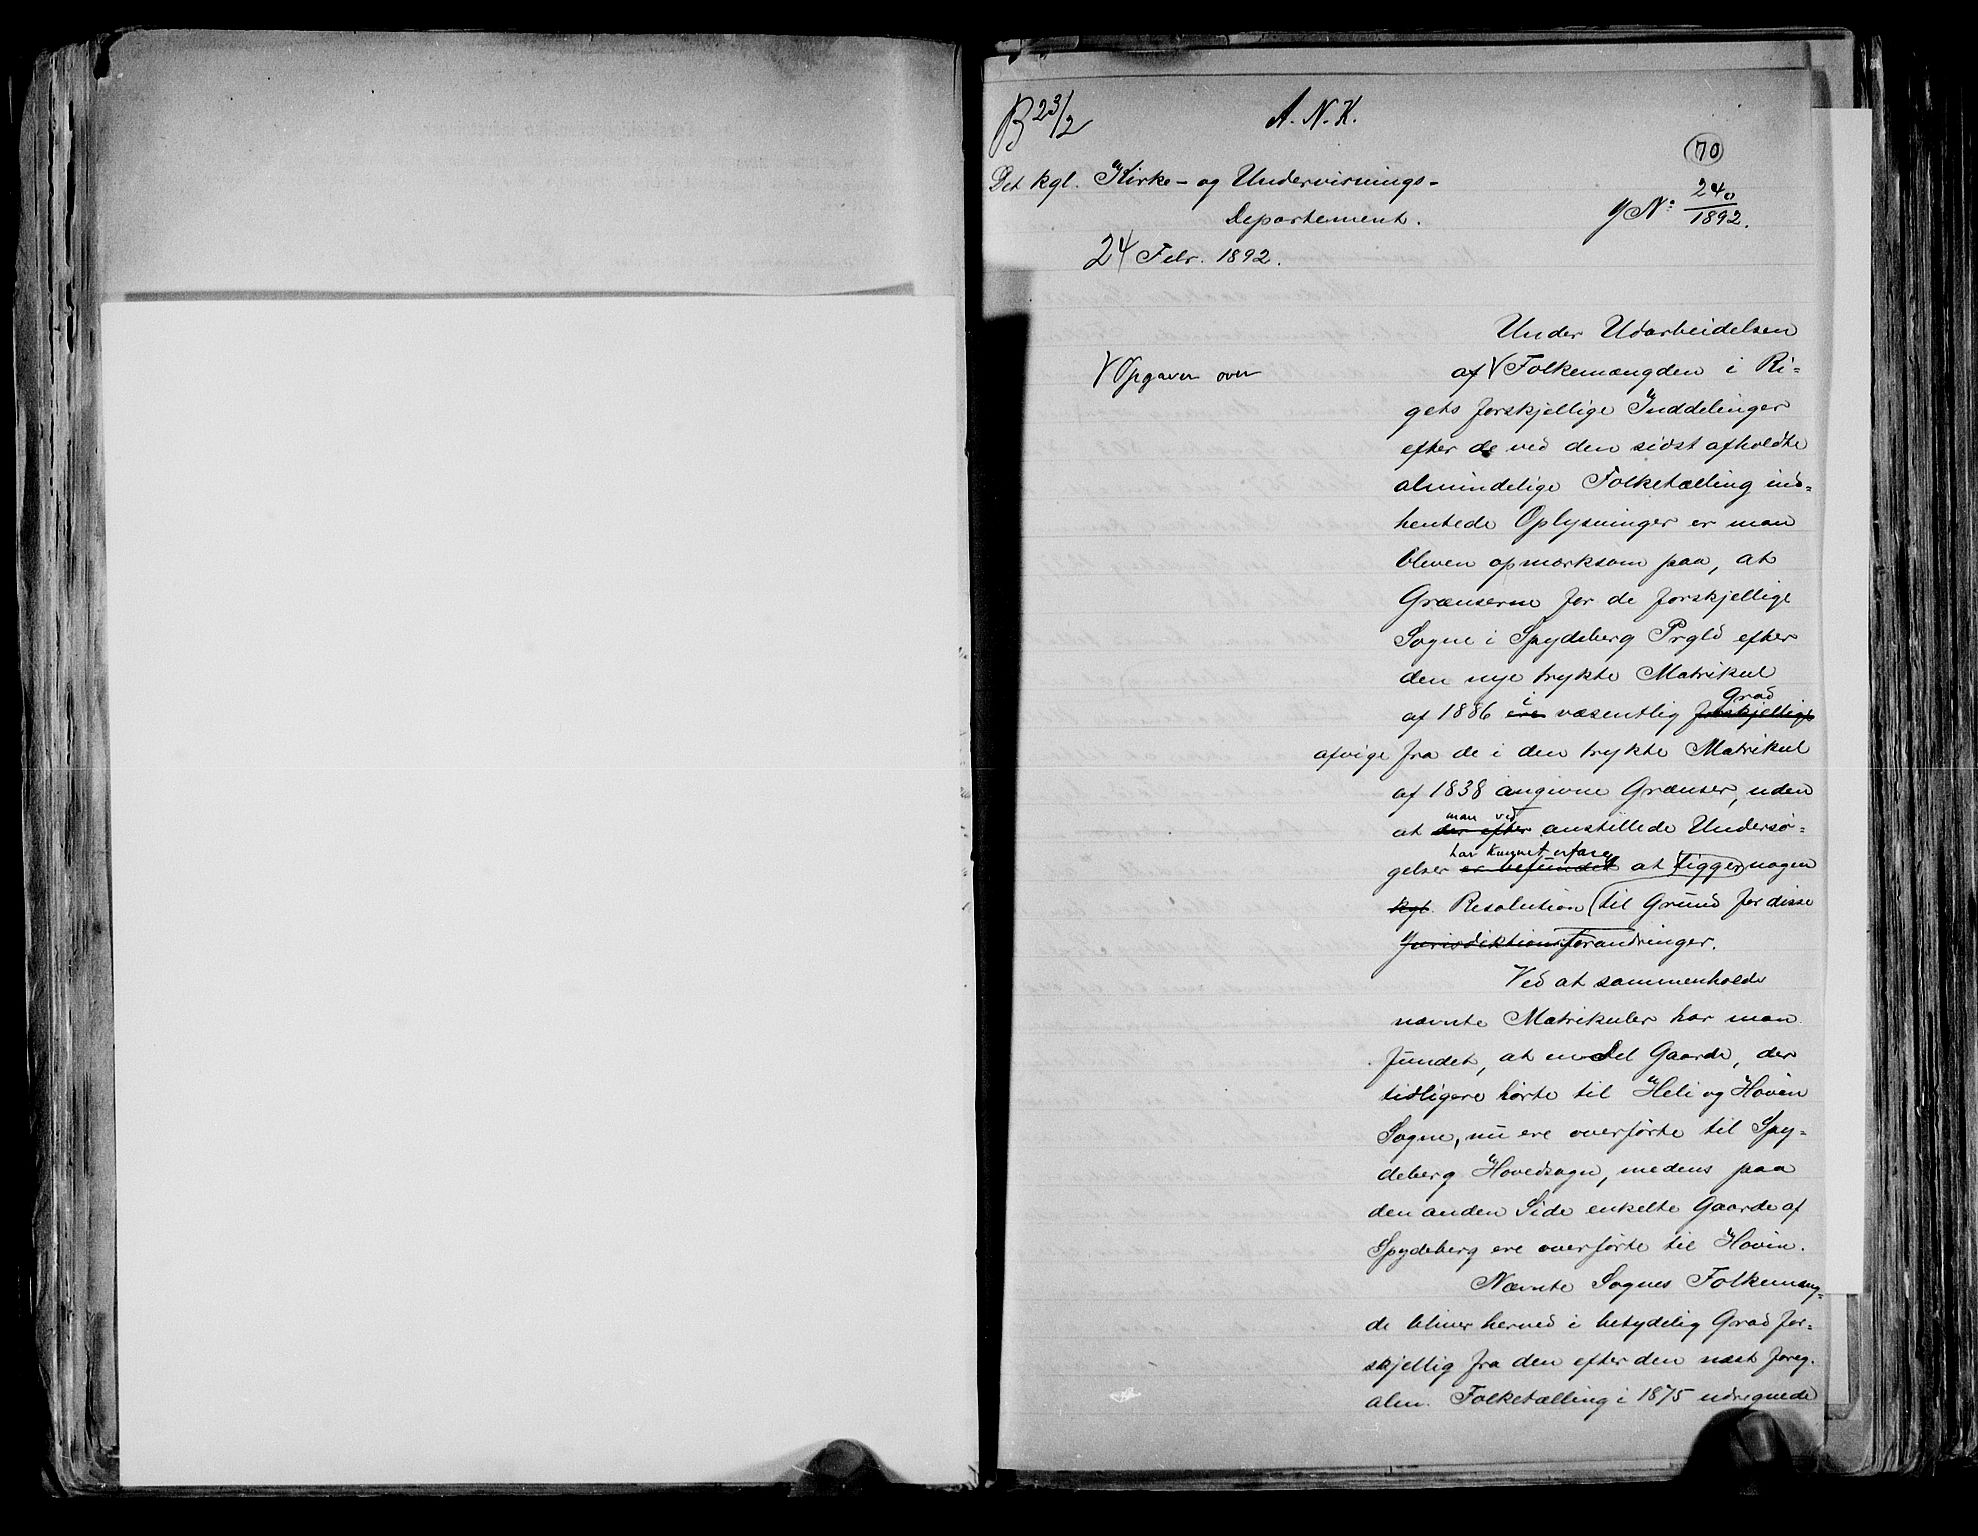 B 23/2
A. N. K.
70
Det kgl. Kirke- og Undervisnings-
Departement.
J N° 240/1892.
24 Febr. 1892.
Under Udarbeidelsen
√ Opgaver over
af √ Folkemængden i Ri-
gets forskjellige Inddelinger
efter de ved den sidst afholdte
almindelige Folketælling ind-
hentede Oplysninger er man
bleven opmærksom paa, at
Grænserne for de forskjellige
Sogne i Spydeberg Prgld efter
den nye trykte Matrikul
af 1886 ere i væsentlig forskjellige Grad
afvige fra de i den trykte Matrikul
af 1838 angivne Grænser, uden
at der efter man ved anstillede Undersø-
gelser er befundet har kunnet erfare at ligger nogen
kgl. Resolution til Grund for disse
Jurisdiktionsforandringer.
Ved at sammenholde
nævnte Matrikuler har man
fundet, at en Del Gaarde, der
tidligere hørte til Heli og Hovin
Sogne, nu ere overførte til Spy-
deberg Hovedsogn, medens paa
den anden Side enkelte Gaarde af
Spydeberg ere overførte til Hovin.
Nævnte Sognes Folkemæng-
de bliver herved i betydelig Grad for-
skjellig fra den efter den næst foreg.
alm. Folketælling i 1875 udregnede